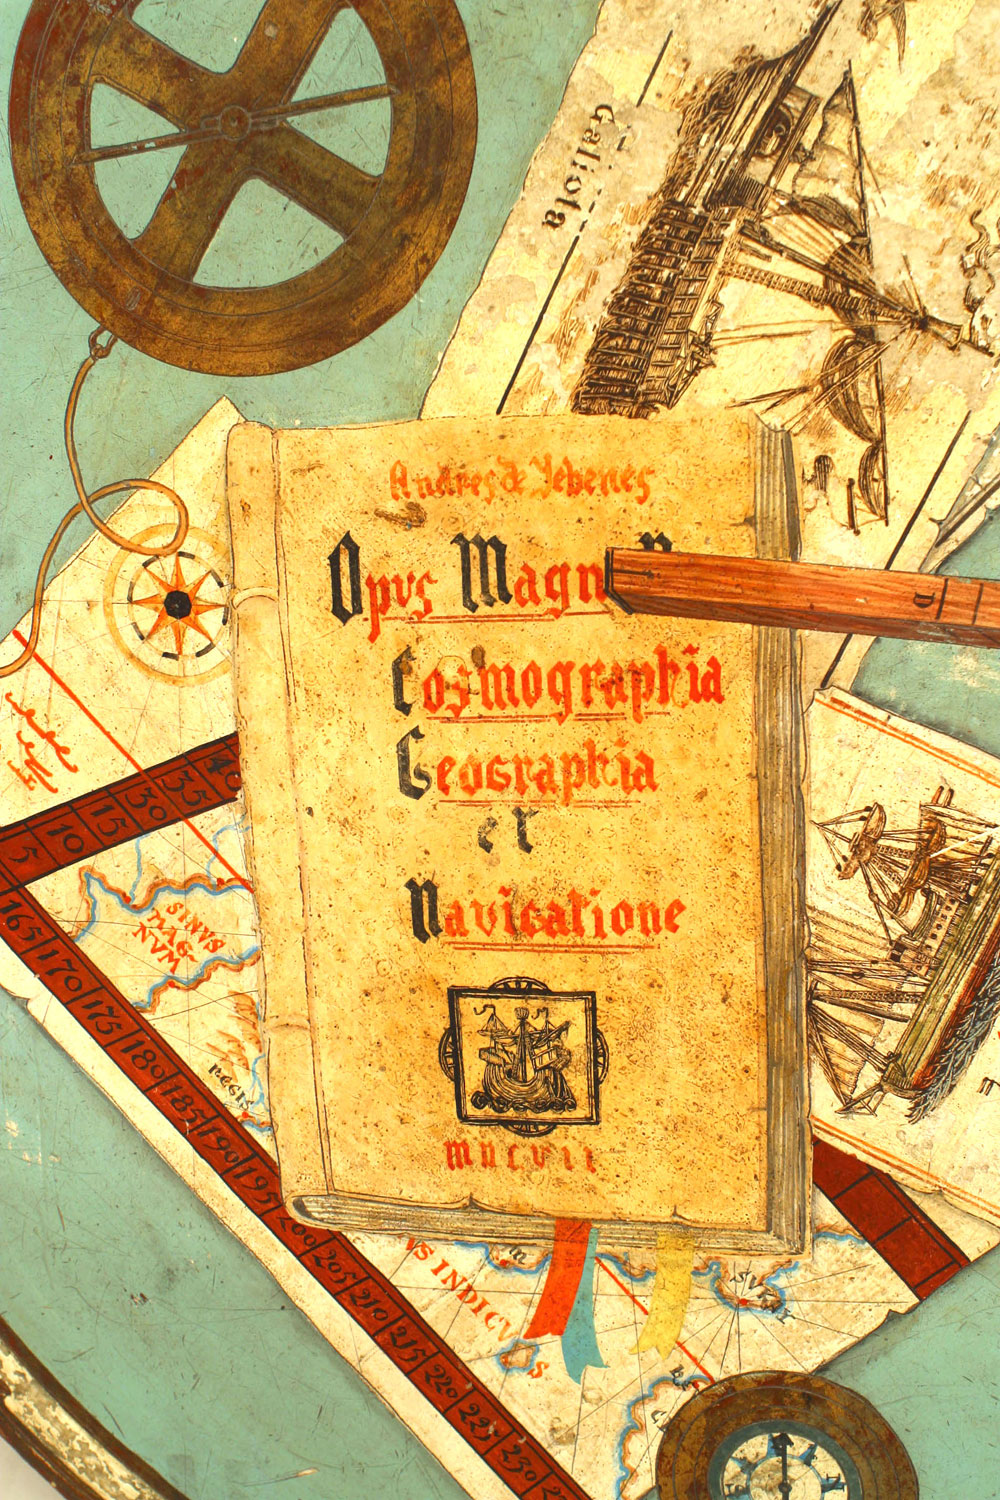 Galiota
Andres de Yebenes
Opvs Magn
Cosmographia
Geographia
et
Navicatione
40
35
30
15
10
5
SINVS
MAG
NVM
REGIS
165
170
175
180
185
190
195
200
205
210
215
220
225
230
VS INDICVS
D
N